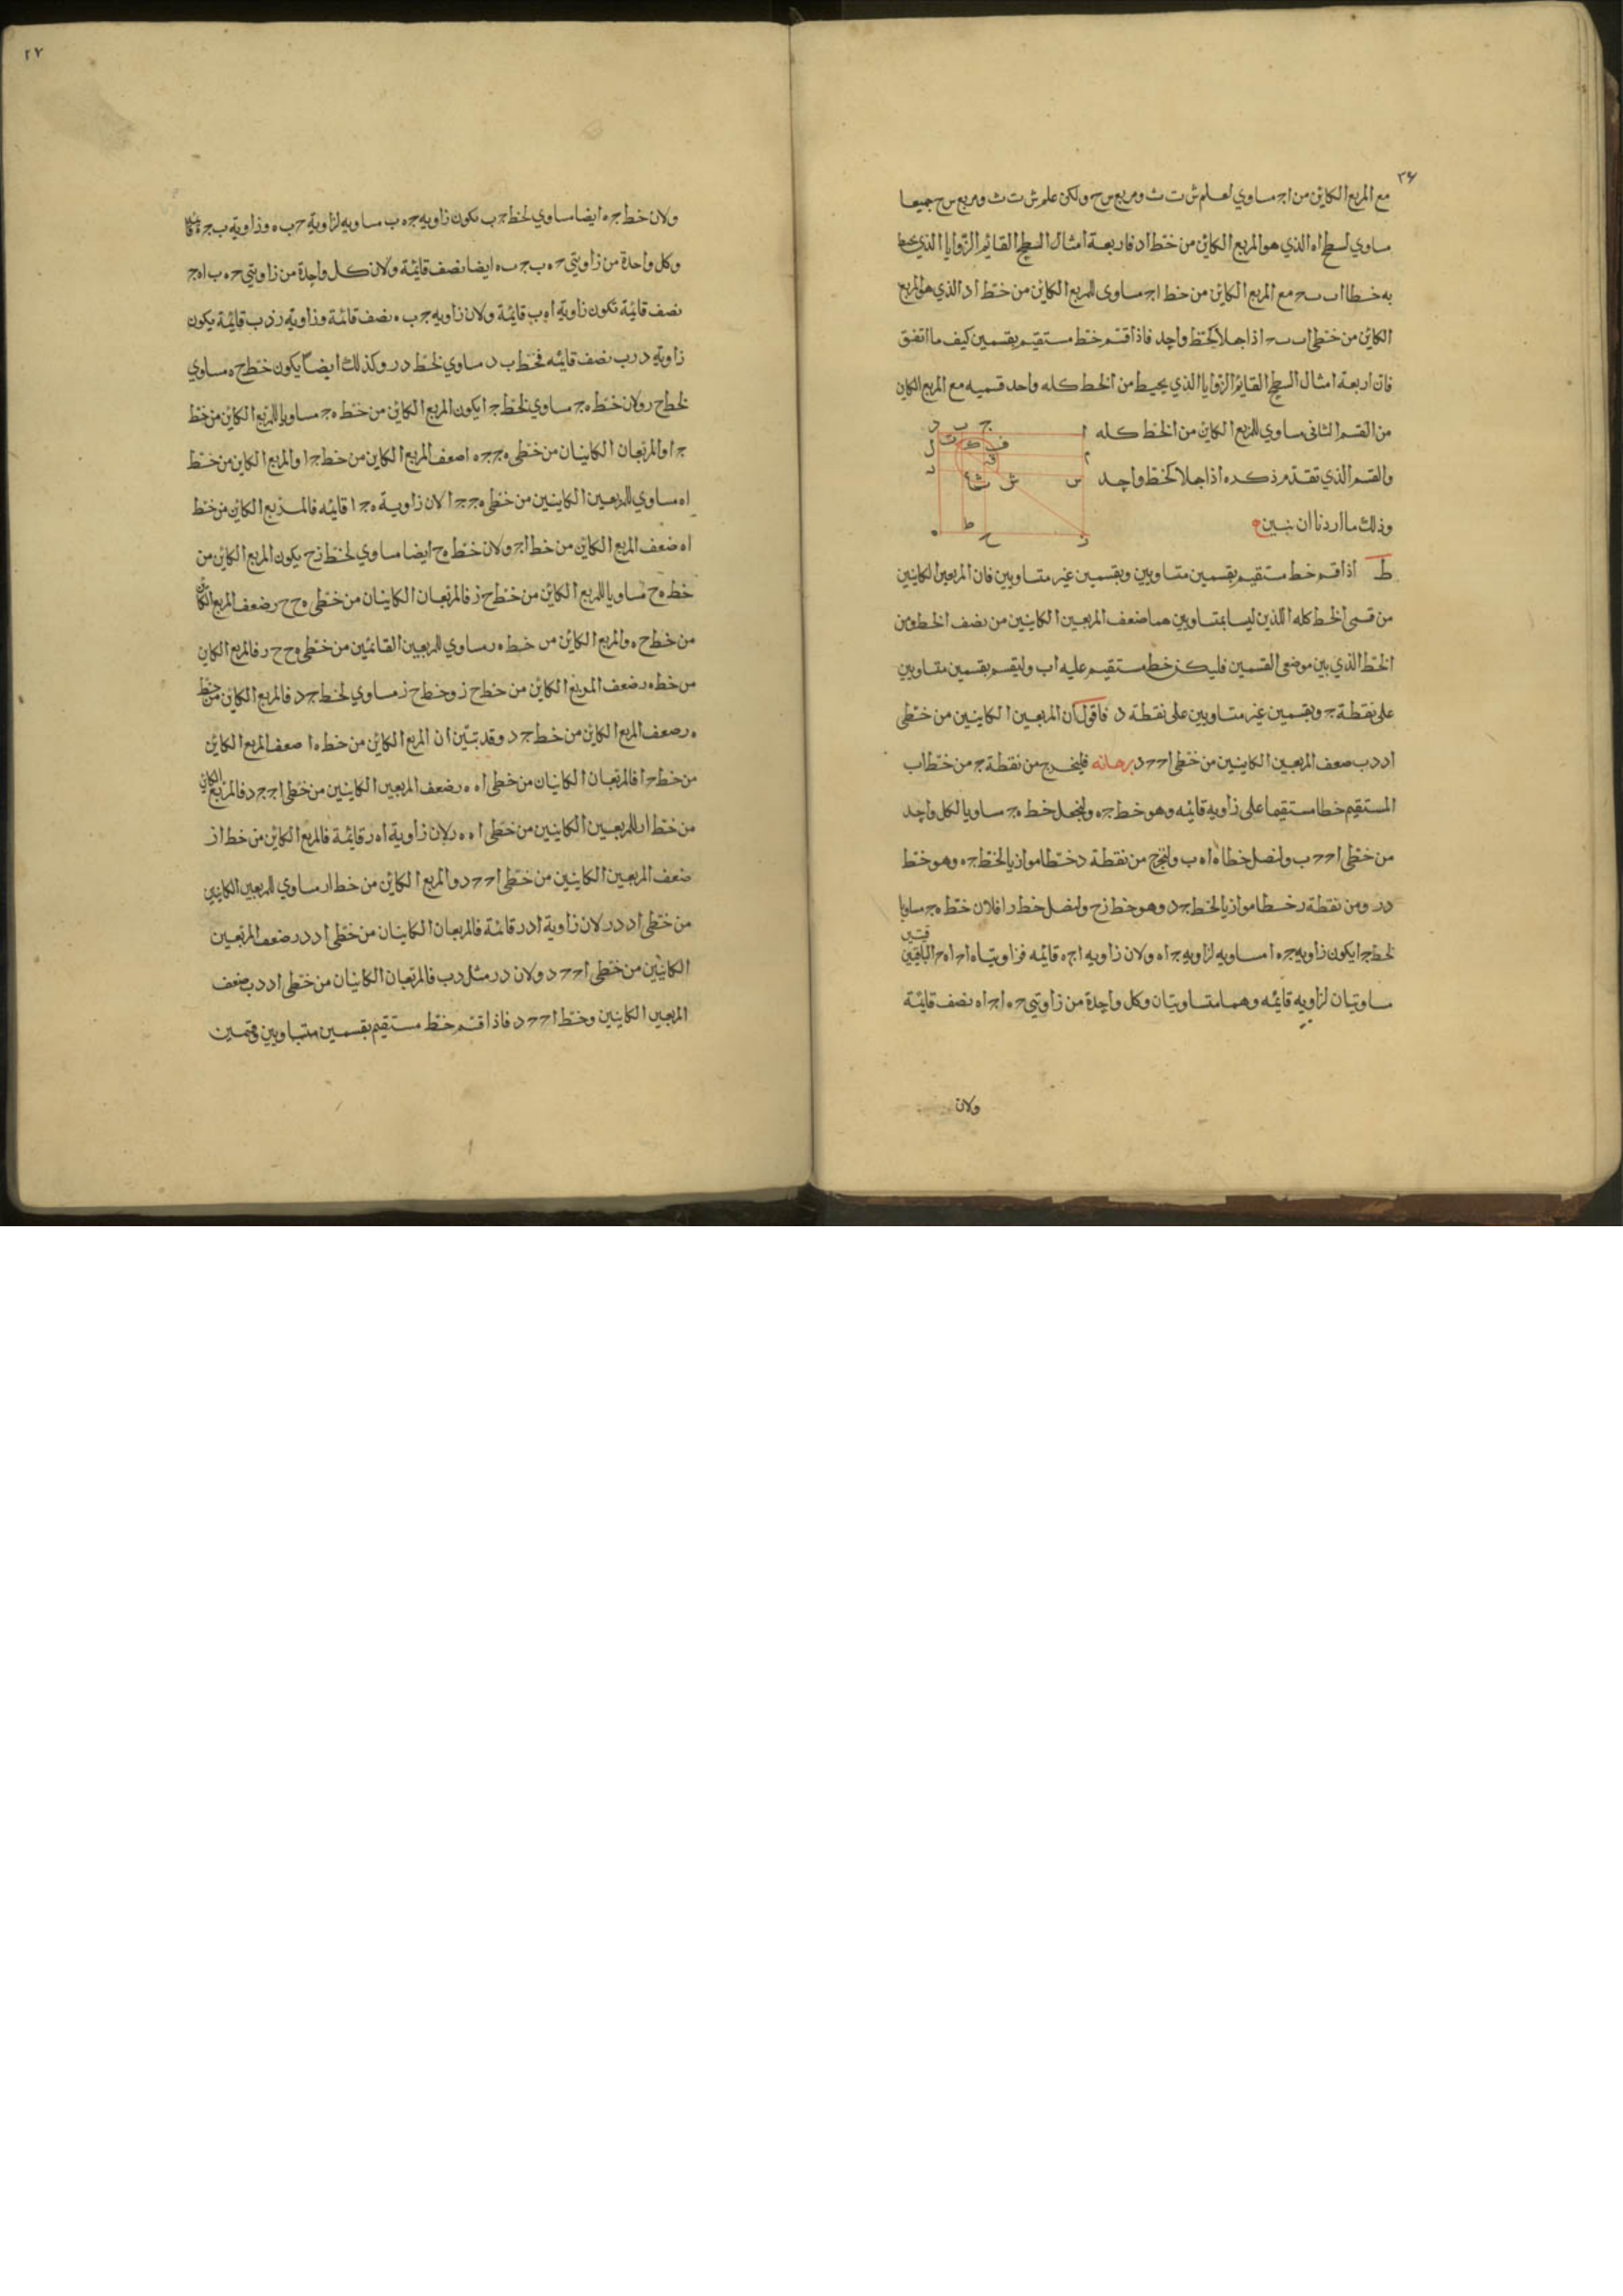 ٢٦
مع المربع الكاين من اج مساوي لعلم ش ت ث ومربع س ح ولكن علم ش ت ث ومربع س ح جميعا
مساوي لسطح اه الذي هو المربع الكاين من خط اد فاربعة امثال السطح القايم الزوايا الذي يحيط
به خطا اب بج مع المربع الكاين من خط اج مساوى للمربع الكاين من خط اد الذي هو المربع
الكاين من خطى اب بج اذا جعلا كخط واحد فاذا قسم خط مستقيم بقسمين كيف ما اتفق
فان اربعة امثال السطح القايم الزوايا الذي يحيط من الخط كله واحد قسميه مع المربع الكاين
من القسم الثانى مساوي للمربع الكاين من الخط كله
والقسم الذي تقدم ذكره اذا جعلا كخط واحد
وذلك ما اردنا ان نبين
د ب ج ا
ل ت ك ف م
ق
ع ث ش س
ه ط ح ز
ط اذا قسم خط مستقيم بقسمين متساويين وبقسمين غير متساويين فان المربعين الكاينين
من قسمى الخط كله اللذين ليسا بمتساويين هما ضعف المربعين الكاينين من نصف الخط ومن
الخط الذي بين موضعى القسمين فليكن خط مستقيم عليه اب وليقسم بقسمين متساويين
على نقطة ج وبقسمين غير متساويين على نقطة د فاقول ان المربعين الكاينين من خطى
اد دب ضعف المربعين الكاينين من خطى اج جد برهانه فليخرج من نقطة ج من خط اب
المستقيم خطا مستقيما على زاويه قايمه وهو خط جه ولنجعل خط هج مساويا لكل واحد
من خطى اج جب ولنصل خطا اه هب ولنخرج من نقطة د خطا موازيا لخط جه وهو خط
در ومن نقطة ر خطا موازيا لخط جد وهو خط زح ولنصل خط را فلان خط هج مساويا
لخط جا يكون زاويه جه ا مساويه لزاويه جاه ولان زاويه اجه قايمه فزاويتا هاج اهج الباقيتين
مساويتان لزاويه قايمه وهما متساويتان وكل واحدة من زاويتي جه ا جاه نصف قايمة
ولان
٢٧
ولان خط جه ايضا مساوي لخط جب يكون زاويه جه ب مساويه لزاوية جب ه وزاوية ب جه قايمة
وكل واحدة من زاويتي جه ب جب ه ايضا نصف قايمة ولان كل واحدة من زاويتي جه ب اهج
نصف قايمة تكون زاوية اهب قايمة ولان زاويه جب ه نصف قائمة وزاوية زدب قايمة يكون
زاوية درب نصف قايمه فخط ب د مساوي لخط در وكذلك ايضا يكون خط ح ه مساوي
لخط ح ر ولان خط هج مساوي لخط جا يكون المربع الكاين من خط هج مساويا للمربع الكاين من خط
جا والمربعان الكاينان من خطى هج جا ضعف المربع الكاين من خط جا والمربع الكاين من خط
اه مساوي للمربعين الكاينين من خطى هج جا لان زاوية هجا قايمه فالمربع الكاين من خط
اه ضعف المربع الكاين من خط اج ولان خط هح ايضا مساوي لخط زح يكون المربع الكاين من
خط هح مساويا للمربع الكاين من خط ح ز فالمربعان الكاينان من خطى هح ح ر ضعف المربع الكاين
من خط ح ه والمربع الكاين من خط ه ر مساوي للمربعين القائمين من خطى هح ح ر فالمربع الكاين
من خط ه ر ضعف المربع الكاين من خط ح ز وخط ح ز مساوي لخط جد فالمربع الكاين من خط
ه ر ضعف المربع الكاين من خط جد وقد تبين ان المربع الكاين من خط ه ا ضعف المربع الكاين
من خط جا فالمربعان الكاينان من خطى اه ه ر ضعف المربعين الكاينين من خطى اج جد فالمربع الكاين
من خط ار للمربعين الكاينين من خطى اه ه ر لان زاوية اه ر قايمة فالمربع الكاين من خط از
ضعف المربعين الكاينين من خطى اج جد والمربع الكاين من خط ار مساوي للمربعين الكاينين
من خطى اد در لان زاوية ادر قائمة فالمربعان الكاينان من خطى اد در ضعف المربعين
الكاينين من خطى اج جد ولان در مثل دب فالمربعان الكاينان من خطى اد دب ضعف
المربعين الكاينين وخط اج جد فاذا قسم خط مستقيم بقسمين متساويين وقسمين